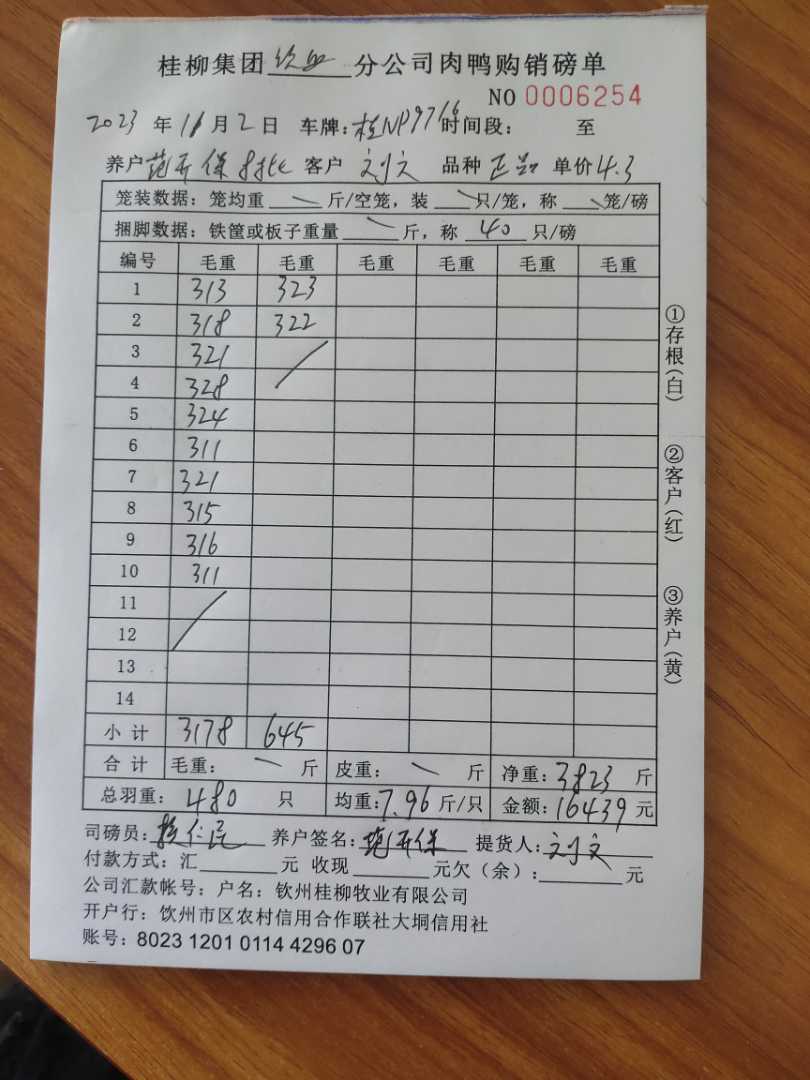 桂柳集团 钦州 分公司肉鸭购销磅单
NO 0006254
2023 年 11 月 2 日 车牌：桂NP9716 时间段： 至
养户 范开保 客户 刘文 品种 正品 单价 4.3
笼装数据：笼均重 \ 斤/空笼，装 \ 只/笼，称 \ 笼/磅
捆脚数据：铁筐或板子重量 \ 斤，称 40 只/磅
编号 毛重 毛重 毛重 毛重 毛重 毛重
1 313 323
2 318 322
3 321 /
4 328
5 324
6 311
7 321
8 315
9 316
10 311
11 /
12
13
14
小计 3178 645
合计 毛重： \ 斤 皮重： \ 斤 净重：3823 斤
总羽重：480 只 均重：7.96 斤/只 金额：16439 元
司磅员： 养户签名：范开保 提货人：刘文
付款方式：汇 元 收现 元欠（余）： 元
公司汇款帐号：户名：钦州桂柳牧业有限公司
开户行：饮州市区农村信用合作联社大垌信用社
账号：8023 1201 0114 4296 07
①存根（白）
②客户（红）
③养户（黄）